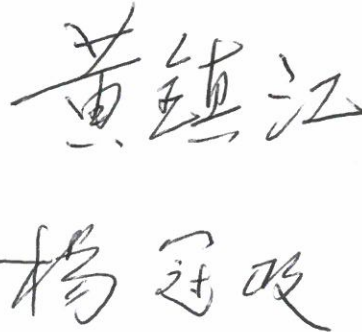 黄镇江
杨冠政